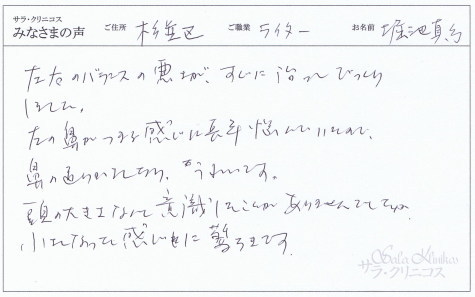 サラ・クリニコス
みなさまの声 ご住所 杉並区 ご職業 ライター お名前 堀池真
左右のバランスの悪さが、すぐに治ってびっくり
しました。
左の鼻がつまる感じに長年悩んでいたので、
鼻の通りがよくなり、うれしいです。
頭の大きさなんて意識したことがありませんでしたが、
小さくなった感じもに驚きです。
Sala Klinikos
サラ・クリニコス